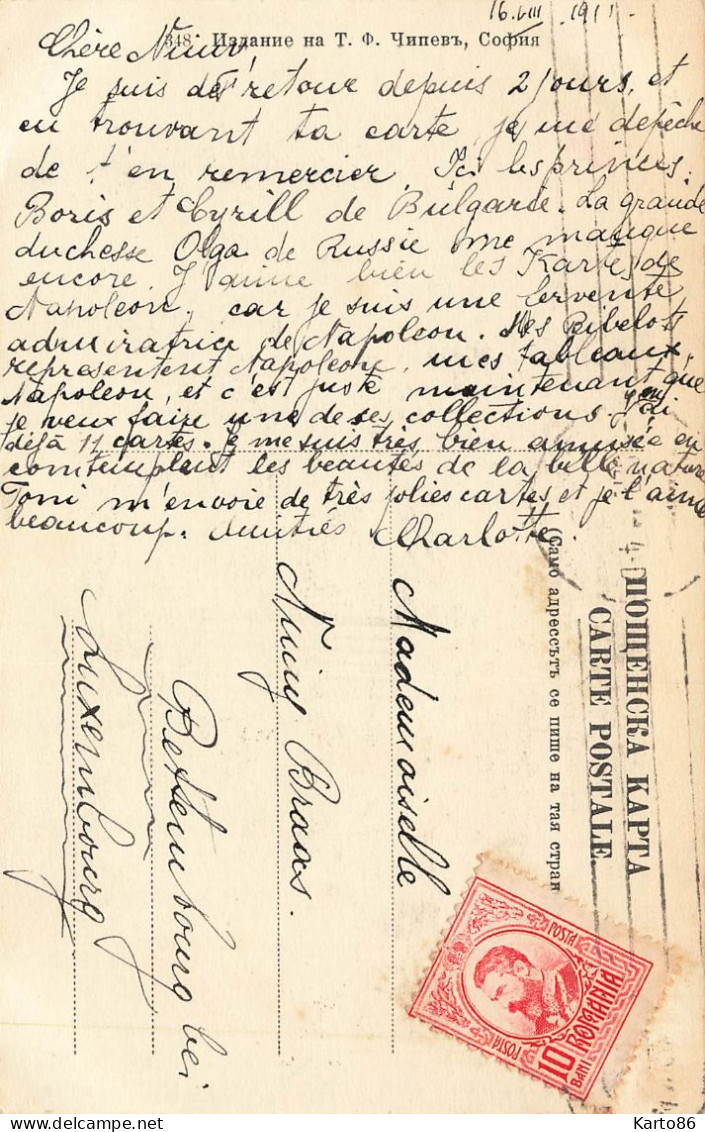 16.VIII.1911.
348. Издание на Т. Ф. Чипевъ, София
Chère
Je suis de retour depuis 2 jours, et
en trouvant ta carte, je me depêche
de t'en remercier. Ici les princes
Boris et Cyrill de Bulgarie. La grande
duchesse Olga de Russie me manque
encore. J'aime bien les Kartes de
Napoleon, car je suis une fervente
admiratrice de Napoleon. Mes Bibelots
representent Napoleon, mes tableaux,
Napoleon, et c'est juste maintenant que
je veux faire une de ses collections. J'en ai
déjà 11 cartes. Je me suis très bien amusée en
comtemplent les beautés de la belle nature
Toni m'envoie de très jolies cartes et je l'aime
beaucoup. Amitiés Charlotte.
ПОЩЕНСКА КАРТА
CARTE POSTALE.
(Само адрессътъ се пише на тая стран
Mademoiselle
Ninny Braas.
Bettembourg bei
Luxembourg
POSTA POSTA
10 BANI ROMANIA